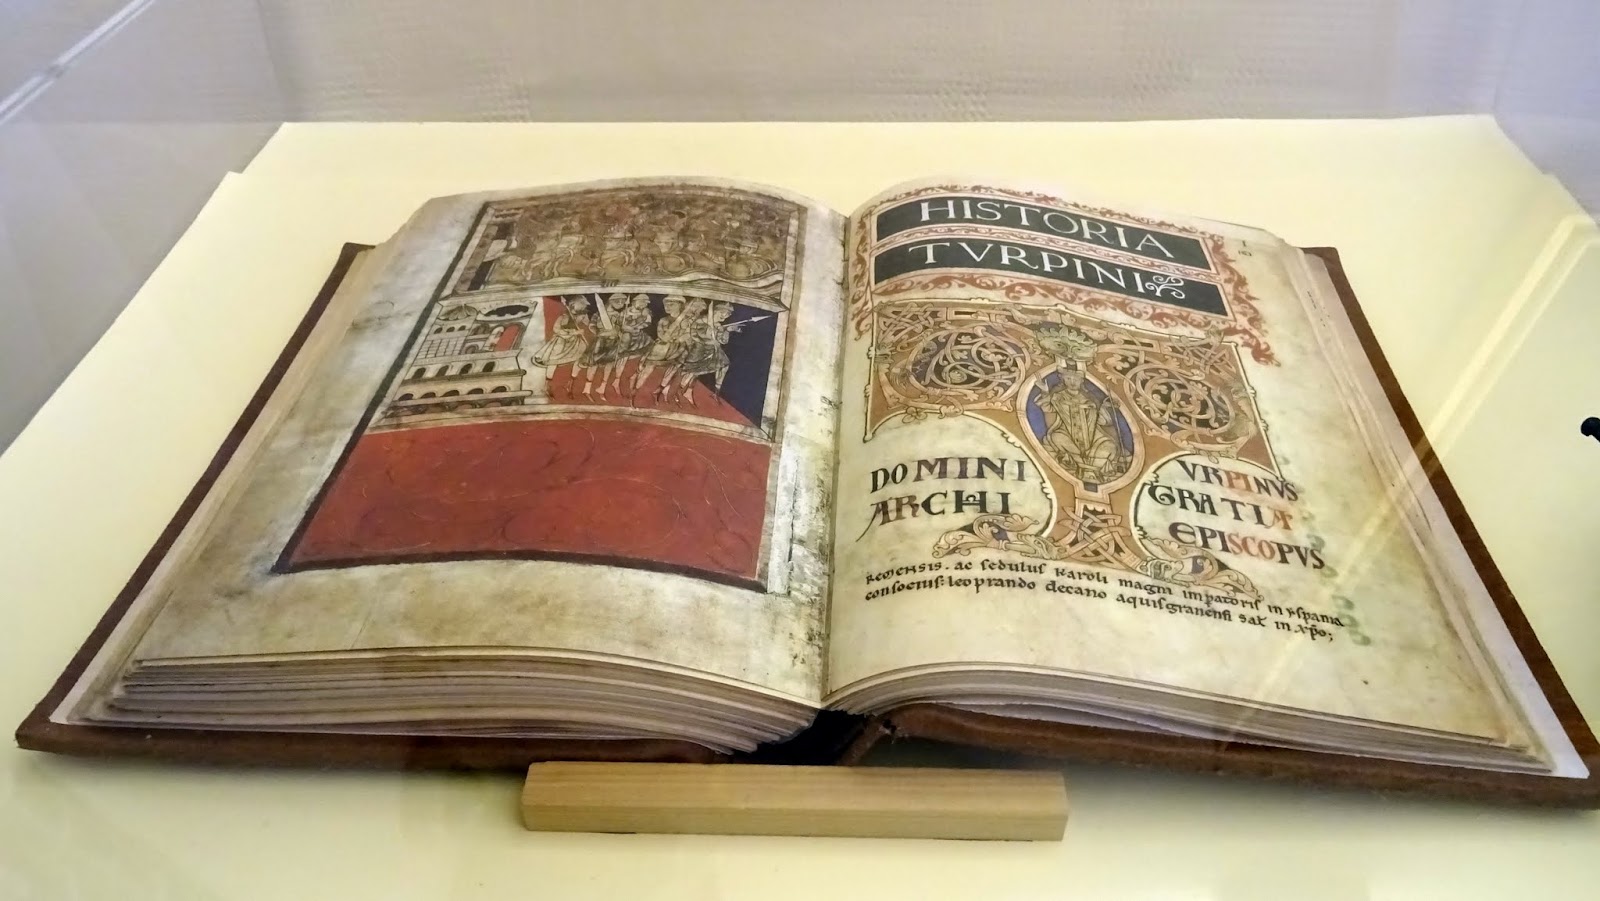 HISTORIA
TVRPINI
I
DOMINI VRPINVS
ARCHI GRATIA
EPISCOPVS
REMENSIS. ac sedulus Karoli magni imꝑatoris in yspania
consocius: leoprando decano aquisgranensi sał in xp̄o;